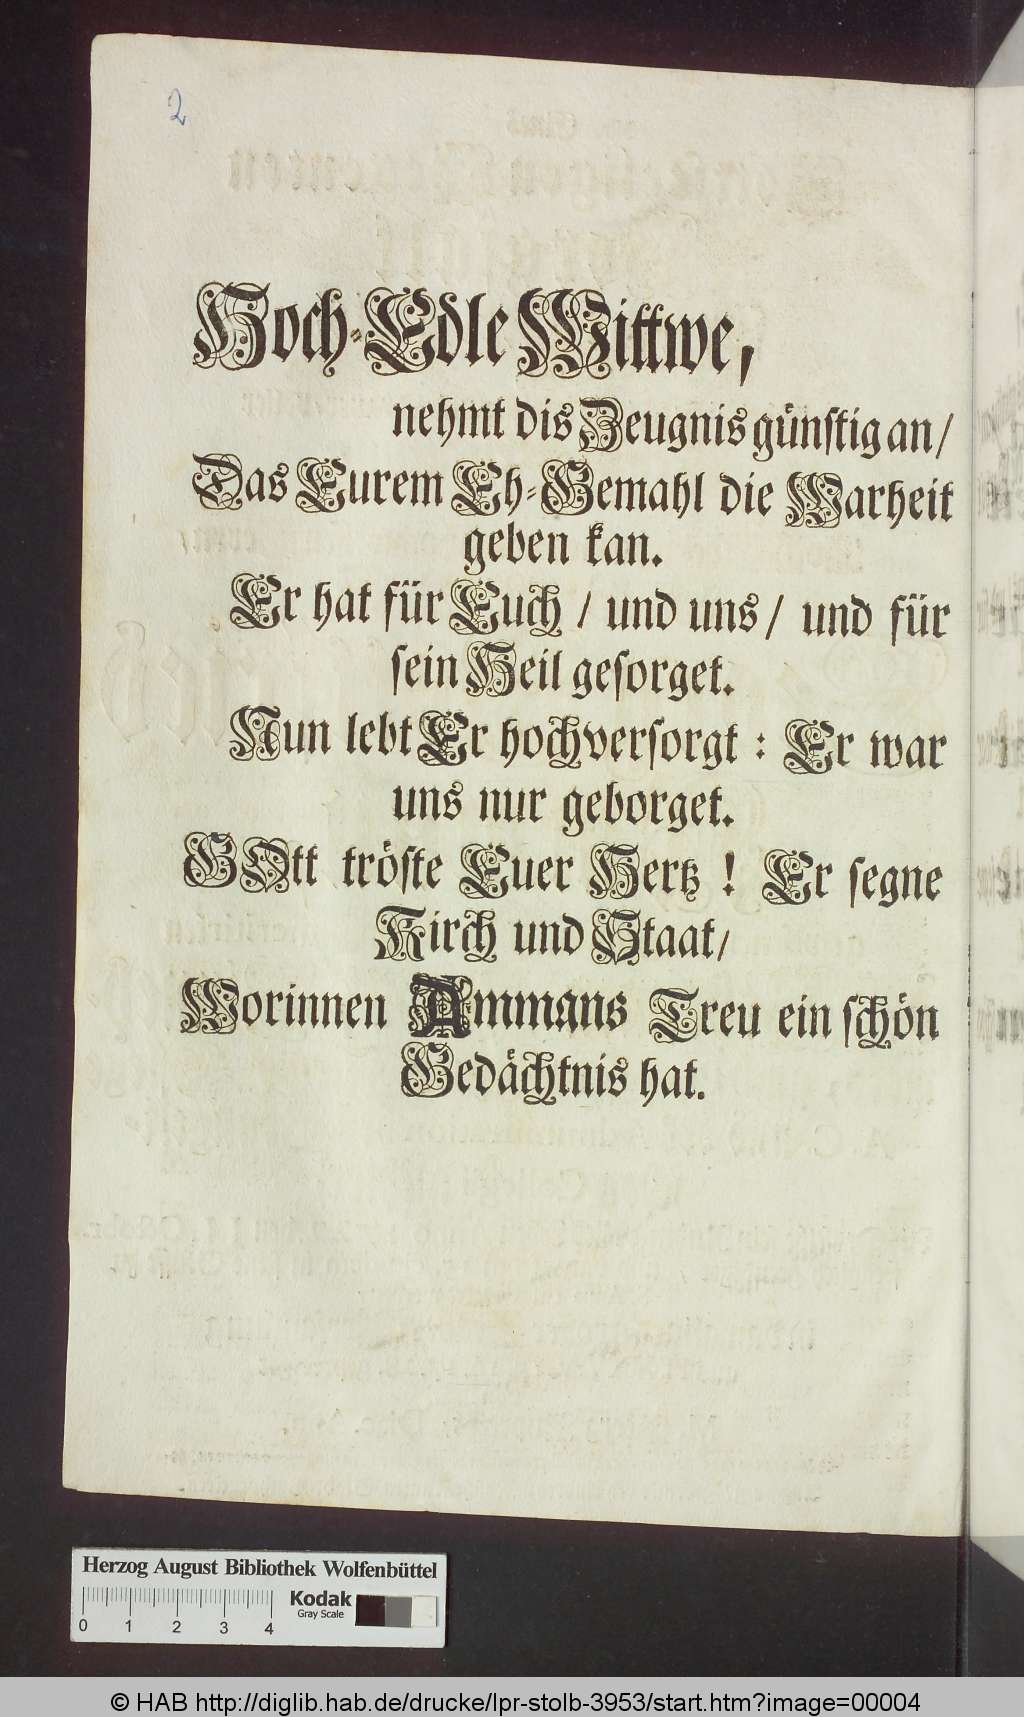 2
Hoch-Edle Wittwe,
nehmt dis Zeugnis günstig an/
Das Eurem Eh-Gemahl die Warheit
geben kan.
Er hat für Euch / und uns/ und für
sein Heil gesorget.
Nun lebt Er hochversorgt : Er war
uns nur geborget.
GOtt tröste Euer Hertz ! Er segne
Kirch und Staat/
Worinnen Ammans Treu ein schön
Gedächtnis hat.
Herzog August Bibliothek Wolfenbüttel
0 1 2 3 4
Kodak
Gray Scale
© HAB http://diglib.hab.de/drucke/lpr-stolb-3953/start.htm?image=00004